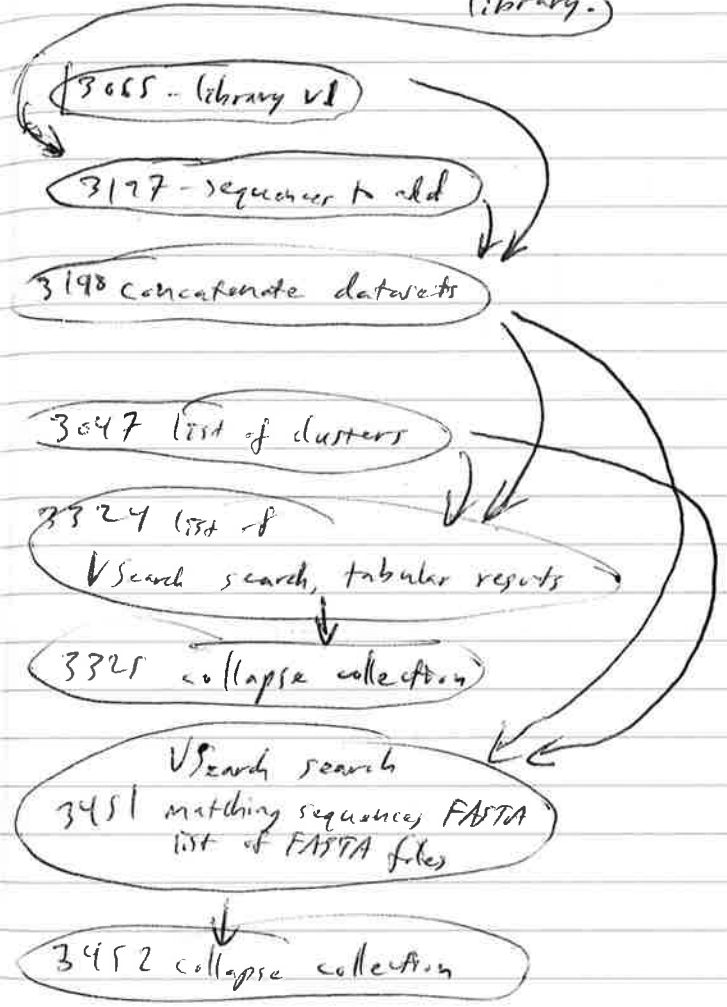 library.
3065 - library v1
3197 - sequences to add
3198 concatenate datasets
3047 list of clusters
3324 list of
VSearch search, tabular results
3325 collapse collection
VSearch search
3451 matching sequences FASTA
list of FASTA files
3452 collapse collection